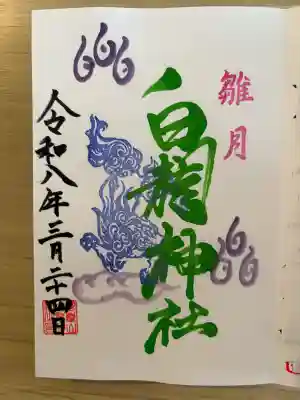 雛月
白龍神社
令和八年三月二十四日